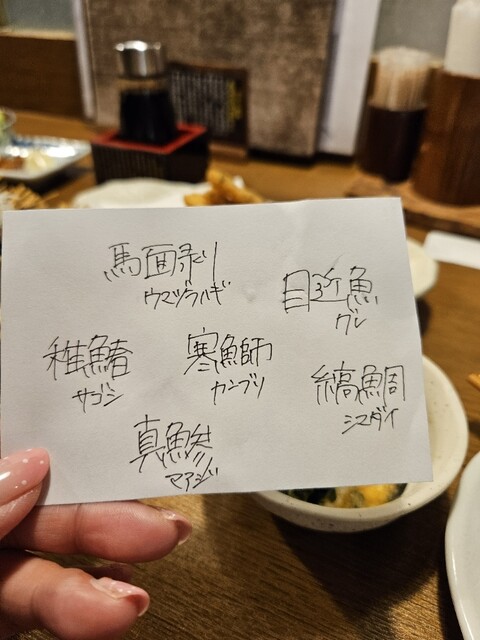 馬面剥
ウマヅラハギ
目近魚
グレ
稚鰆
サゴシ
寒鰤
カンブリ
縞鯛
シマダイ
真鯵
マアジ